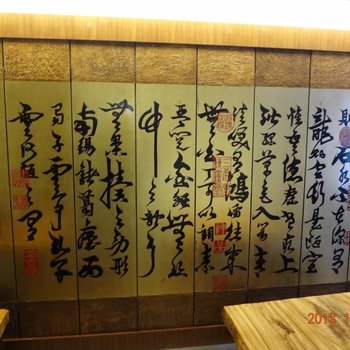 水不在深有
龍則靈斯是陋室
惟吾德馨苔痕上
階綠草色入簾青
談笑有鴻儒往來
無白丁可以調素
琴閱金經無絲
竹之亂耳
無案牘之勞形
南陽諸葛廬西
蜀子雲亭孔子
云何陋之有
2013